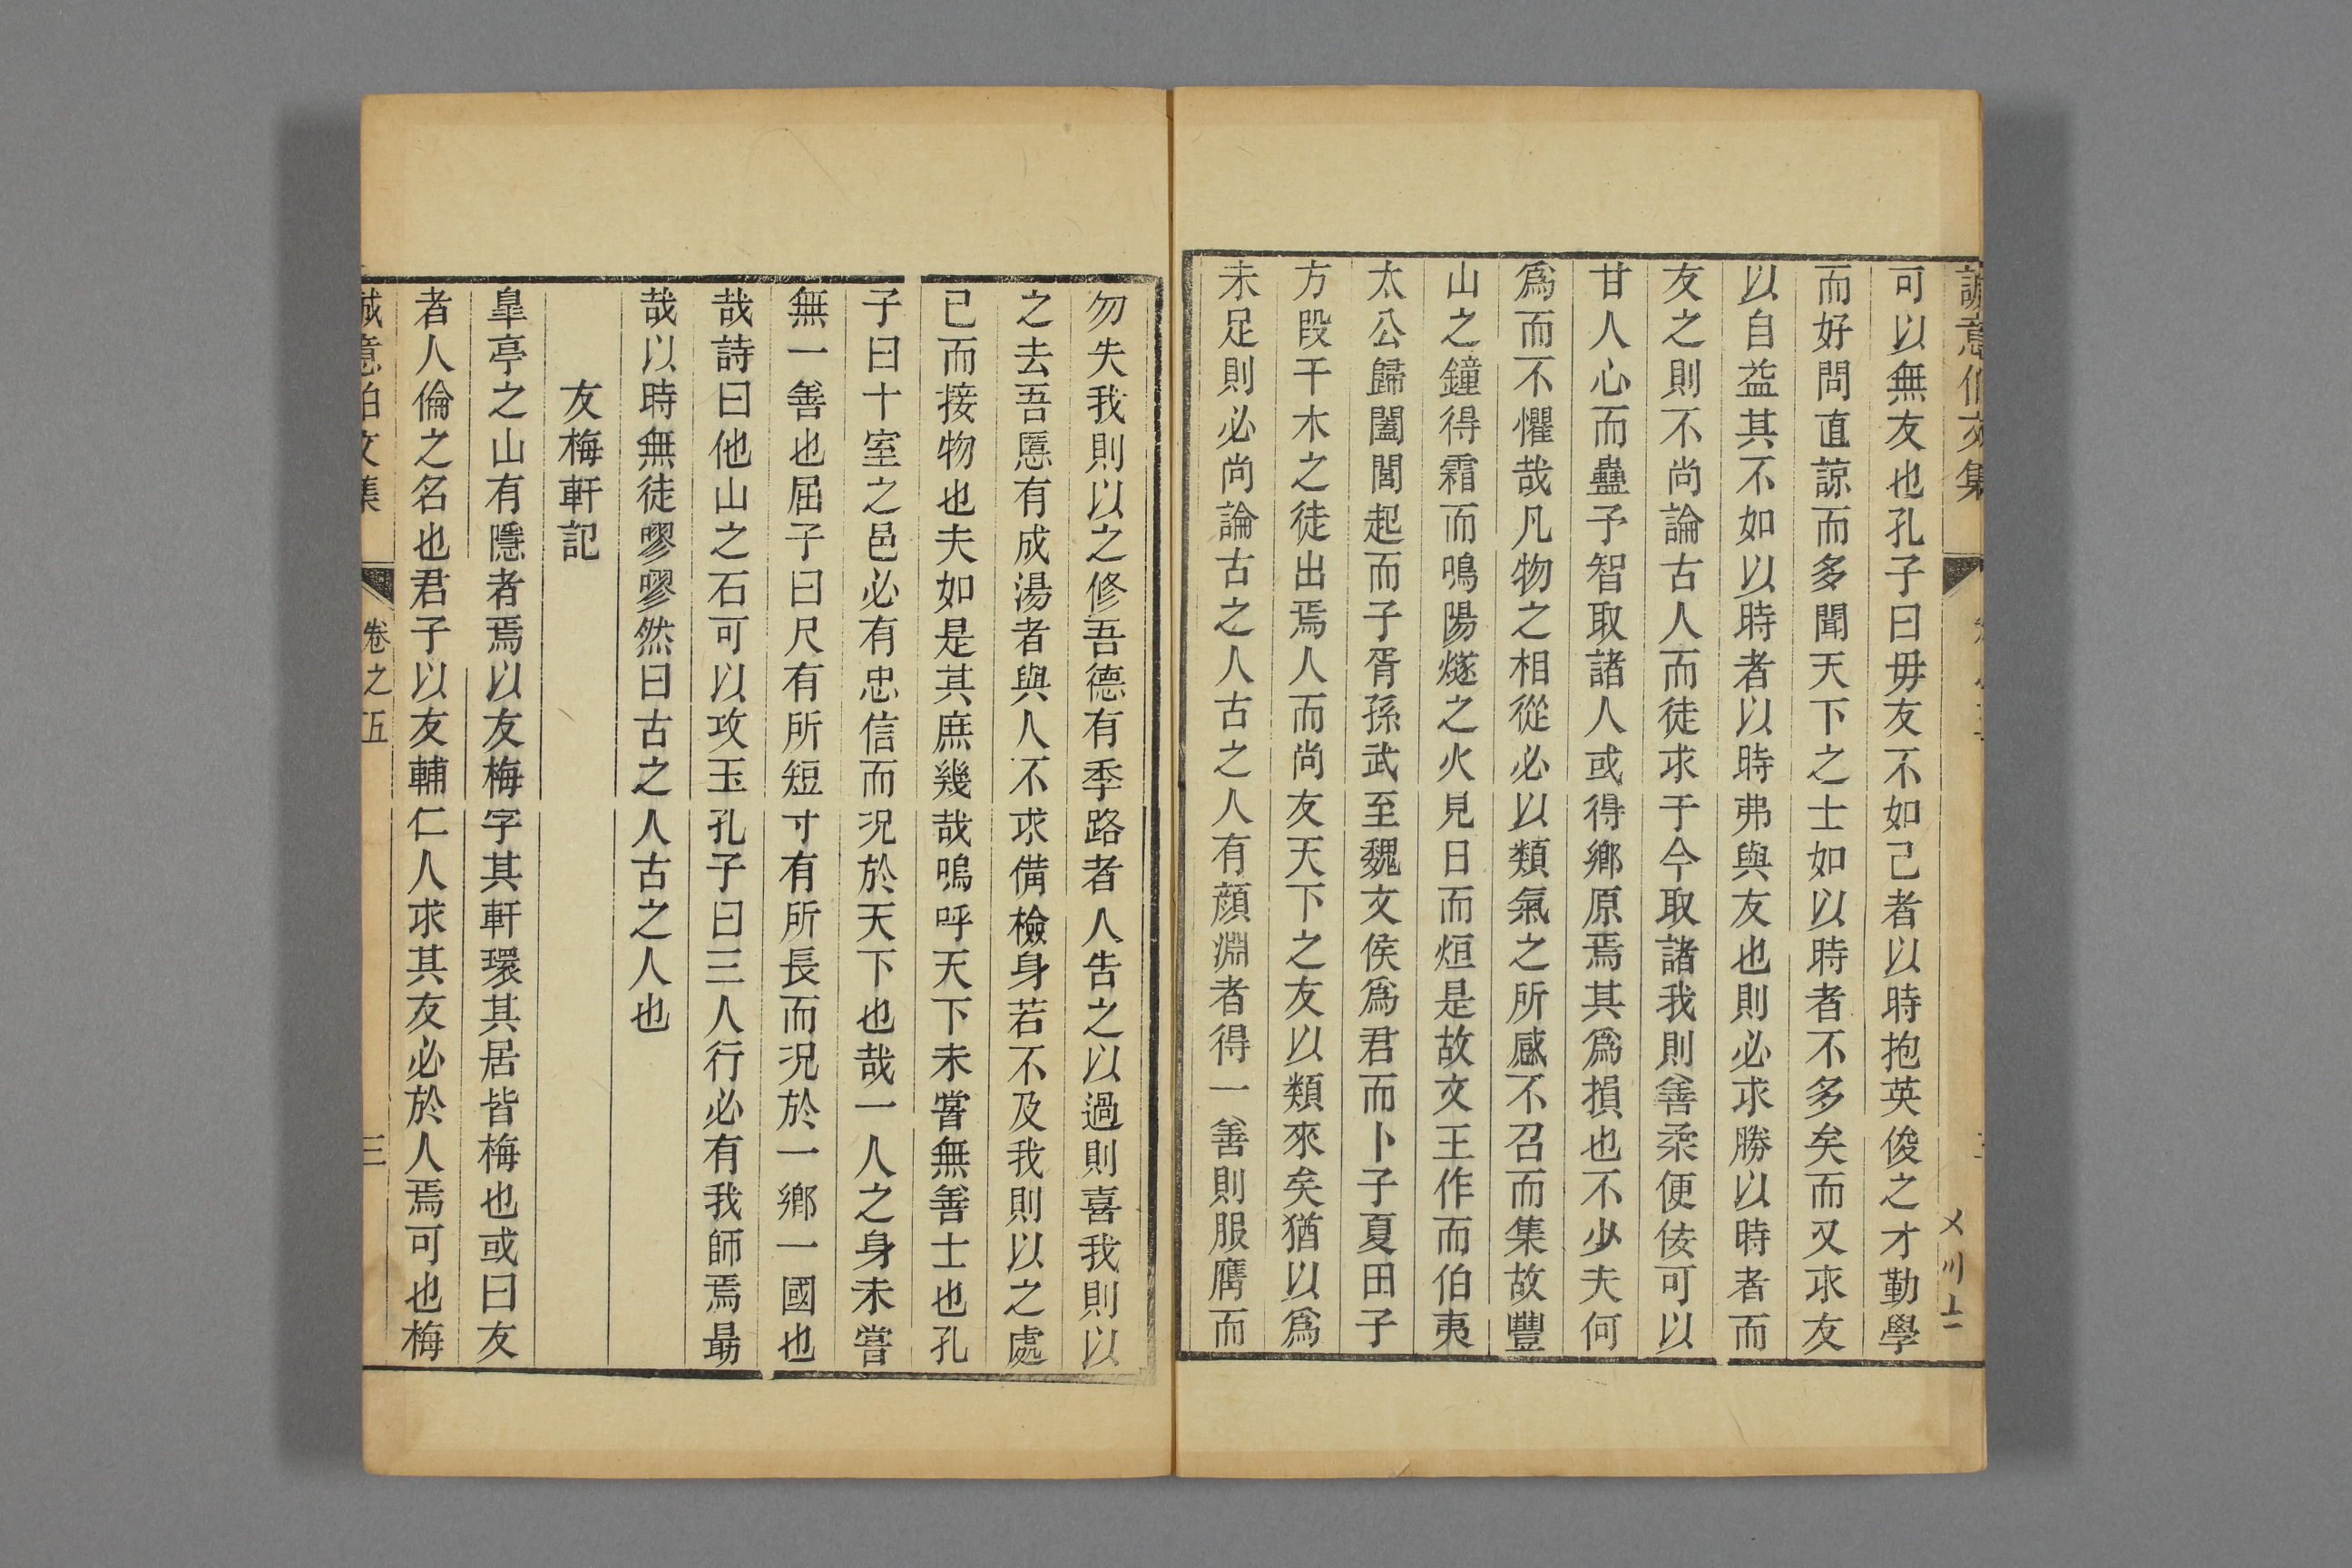 誠意伯文集
可以無友也孔子曰毋友不如己者以時抱英俊之才勤學
而好問直諒而多聞天下之士如以時者不多矣而又求友
以自益其不如以時者以時弗與友也則必求勝以時者而
友之則不尚論古人而徒求于今取諸我則善柔便佞可以
甘人心而蠱予智取諸人或得鄉原焉其爲損也不少夫何
爲而不懼哉凡物之相從必以類氣之所感不召而集故豐
山之鐘得霜而鳴陽燧之火見日而烜是故文王作而伯夷
太公歸闔閭起而子胥孫武至魏文侯爲君而卜子夏田子
方段干木之徒出焉人而尚友天下之友以類來矣猶以爲
未足則必尚論古之人古之人有顏淵者得一善則服膺而
勿失我則以之修吾德有季路者人告之以過則喜我則以
之去吾慝有成湯者與人不求備檢身若不及我則以之處
已而接物也夫如是其庶幾哉嗚呼天下未嘗無善士也孔
子曰十室之邑必有忠信而況於天下也哉一人之身未嘗
無一善也屈子曰尺有所短寸有所長而況於一鄉一國也
哉詩曰他山之石可以攻玉孔子曰三人行必有我師焉勗
哉以時無徒嘐嘐然曰古之人古之人也
友梅軒記
皐亭之山有隱者焉以友梅字其軒環其居皆梅也或曰友
者人倫之名也君子以友輔仁人求其友必於人焉可也梅
誠意伯文集 卷之五 三